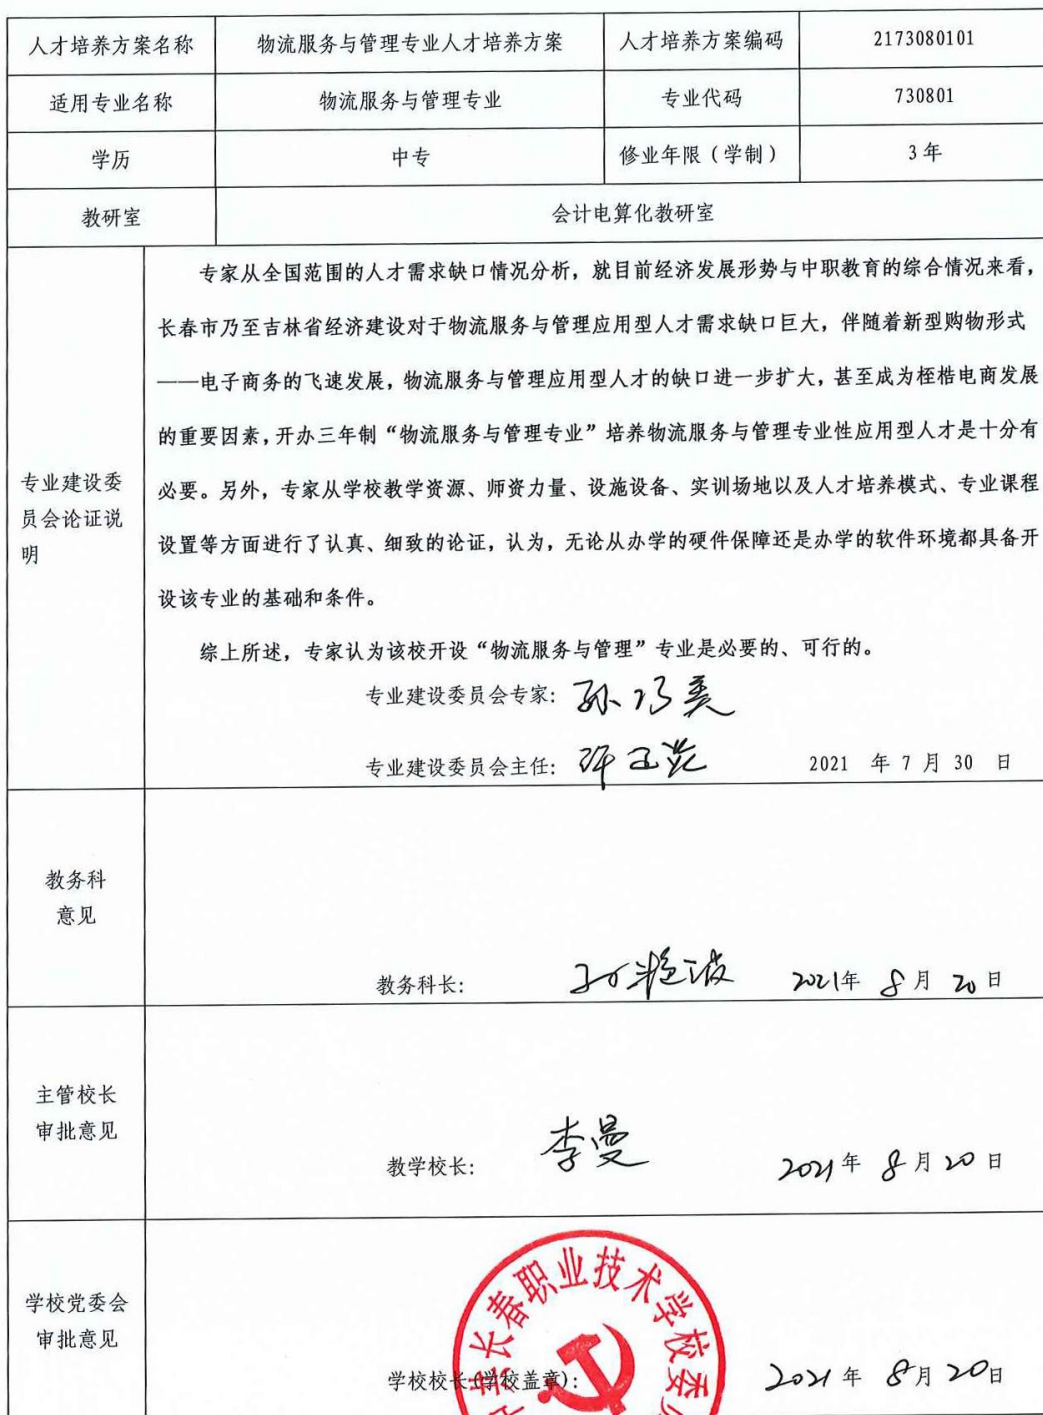 人才培养方案名称 物流服务与管理专业人才培养方案 人才培养方案编码 2173080101
适用专业名称 物流服务与管理专业 专业代码 730801
学历 中专 修业年限（学制） 3年
教研室 会计电算化教研室
专业建设委
员会论证说
明
专家从全国范围的人才需求缺口情况分析，就目前经济发展形势与中职教育的综合情况来看，
长春市乃至吉林省经济建设对于物流服务与管理应用型人才需求缺口巨大，伴随着新型购物形式
——电子商务的飞速发展，物流服务与管理应用型人才的缺口进一步扩大，甚至成为桎梏电商发展
的重要因素，开办三年制“物流服务与管理专业”培养物流服务与管理专业性应用型人才是十分有
必要。另外，专家从学校教学资源、师资力量、设施设备、实训场地以及人才培养模式、专业课程
设置等方面进行了认真、细致的论证，认为，无论从办学的硬件保障还是办学的软件环境都具备开
设该专业的基础和条件。
综上所述，专家认为该校开设“物流服务与管理”专业是必要的、可行的。
专业建设委员会专家：
专业建设委员会主任： 2021 年 7 月 30 日
教务科
意见
教务科长： 2021年 8月 20日
主管校长
审批意见
教学校长： 李曼 2021年 8月20日
学校党委会
审批意见
长春职业技术学校委
学校校长(学校盖章)： 2021年 8月20日